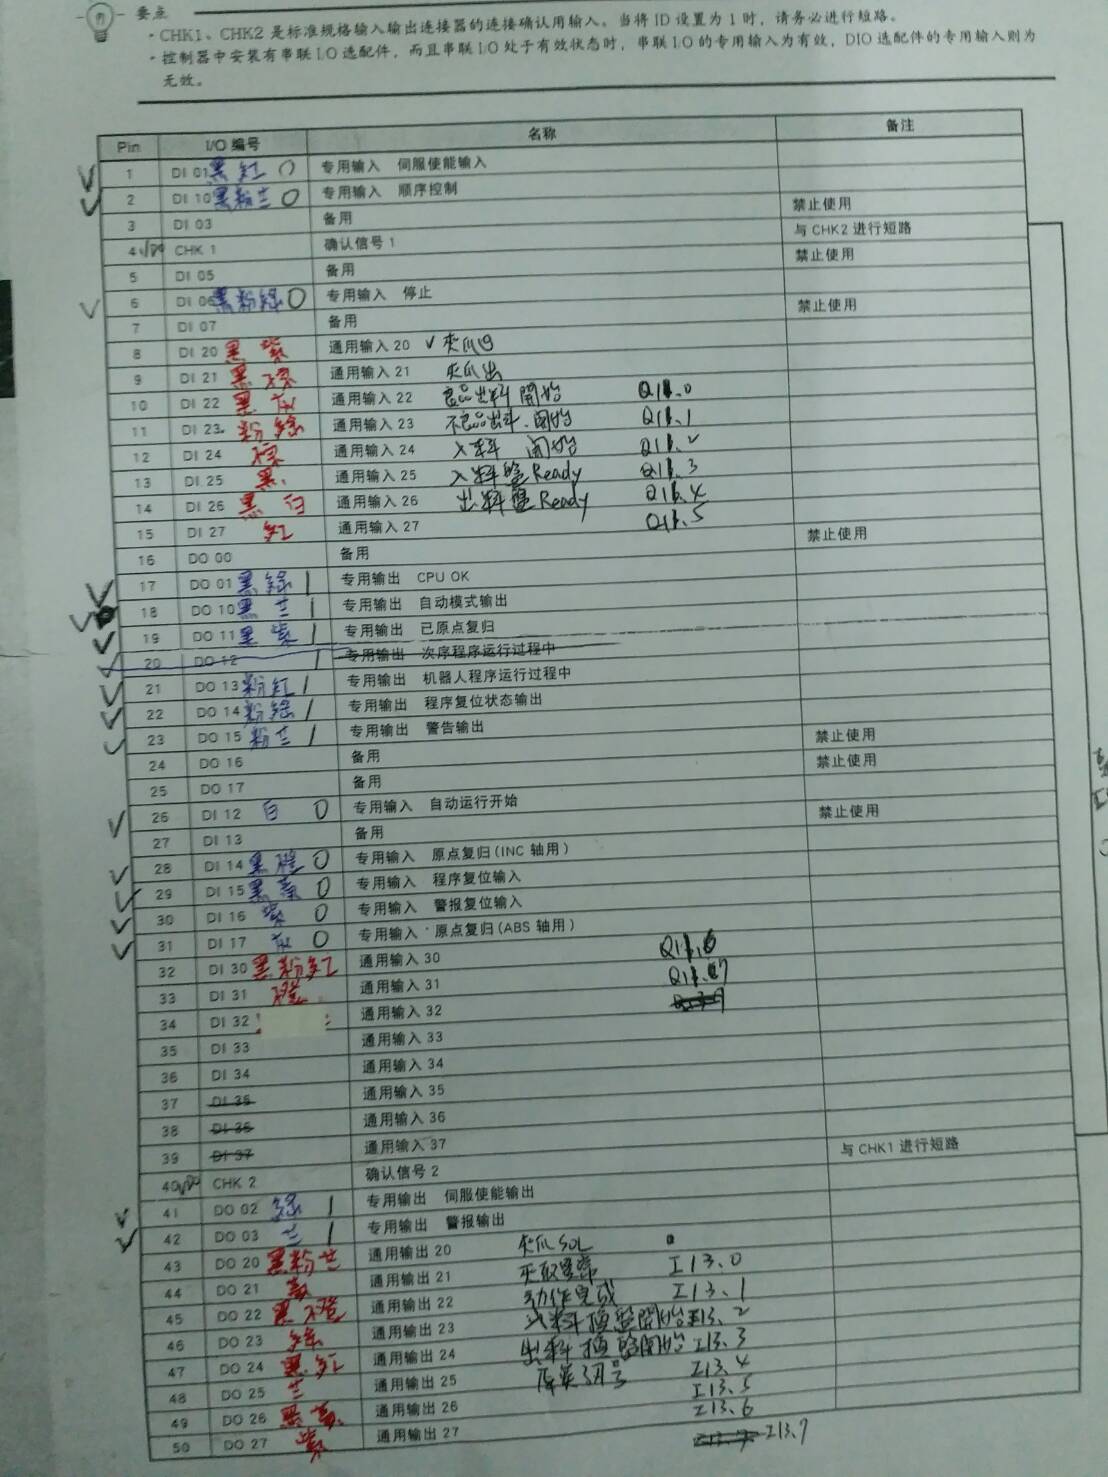 要点
· CHK1、CHK2 是标准规格输入输出连接器的连接确认用输入。当将 ID 设置为 1 时，请务必进行短路。
· 控制器中安装有串联 I/O 选配件，而且串联 I/O 处于有效状态时，串联 I/O 的专用输入为有效，DIO 选配件的专用输入则为
无效。
Pin I/O 编号 名称 备注
1 DI 01 黑 红 0 专用输入 伺服使能输入
2 DI 10 黑粉兰 0 专用输入 顺序控制
3 DI 03 备用 禁止使用
4 CHK 1 确认信号 1 与 CHK2 进行短路
5 DI 05 备用 禁止使用
6 DI 06 黑粉绿 0 专用输入 停止
7 DI 07 备用 禁止使用
8 DI 20 黑 紫 通用输入 20 √ 夾爪回
9 DI 21 黑 棕 通用输入 21 夾爪出
10 DI 22 黑 灰 通用输入 22 良品出料 開始 Q11.0
11 DI 23 粉 绿 通用输入 23 不良品出料 開始 Q11.1
12 DI 24 棕 通用输入 24 入料 開始 Q11.2
13 DI 25 黑 通用输入 25 入料盤 Ready Q11.3
14 DI 26 黑 白 通用输入 26 出料盤 Ready Q11.4
15 DI 27 红 通用输入 27 Q11.5
16 DO 00 备用 禁止使用
17 DO 01 黑 绿 1 专用输出 CPU OK
18 DO 10 黑 兰 1 专用输出 自动模式输出
19 DO 11 黑 紫 1 专用输出 已原点复归
20 DO 12 1 专用输出 次序程序运行过程中
21 DO 13 粉 红 1 专用输出 机器人程序运行过程中
22 DO 14 粉 绿 1 专用输出 程序复位状态输出
23 DO 15 粉 兰 1 专用输出 警告输出
24 DO 16 备用 禁止使用
25 DO 17 备用 禁止使用
26 DI 12 白 0 专用输入 自动运行开始
27 DI 13 备用 禁止使用
28 DI 14 黑 橙 0 专用输入 原点复归(INC 轴用)
29 DI 15 黑 黄 0 专用输入 程序复位输入
30 DI 16 紫 0 专用输入 警报复位输入
31 DI 17 灰 0 专用输入 原点复归(ABS 轴用)
32 DI 30 黑粉红 通用输入 30 Q11.6
33 DI 31 橙 通用输入 31 Q11.7
34 DI 32 通用输入 32
35 DI 33 通用输入 33
36 DI 34 通用输入 34
37 DI 35 通用输入 35
38 DI 36 通用输入 36
39 DI 37 通用输入 37
40 CHK 2 确认信号 2 与 CHK1 进行短路
41 DO 02 绿 1 专用输出 伺服使能输出
42 DO 03 兰 1 专用输出 警报输出
43 DO 20 黑粉兰 通用输出 20 夾爪 SOL
44 DO 21 黄 通用输出 21 夾取異常 I13.0
45 DO 22 黑 橙 通用输出 22 动作完成 I13.1
46 DO 23 绿 通用输出 23 入料換盤開始 I13.2
47 DO 24 黑 红 通用输出 24 出料換盤開始 I13.3
48 DO 25 兰 通用输出 25 I13.4
49 DO 26 黑 黄 通用输出 26 I13.5
50 DO 27 紫 通用输出 27 I13.6
I13.7